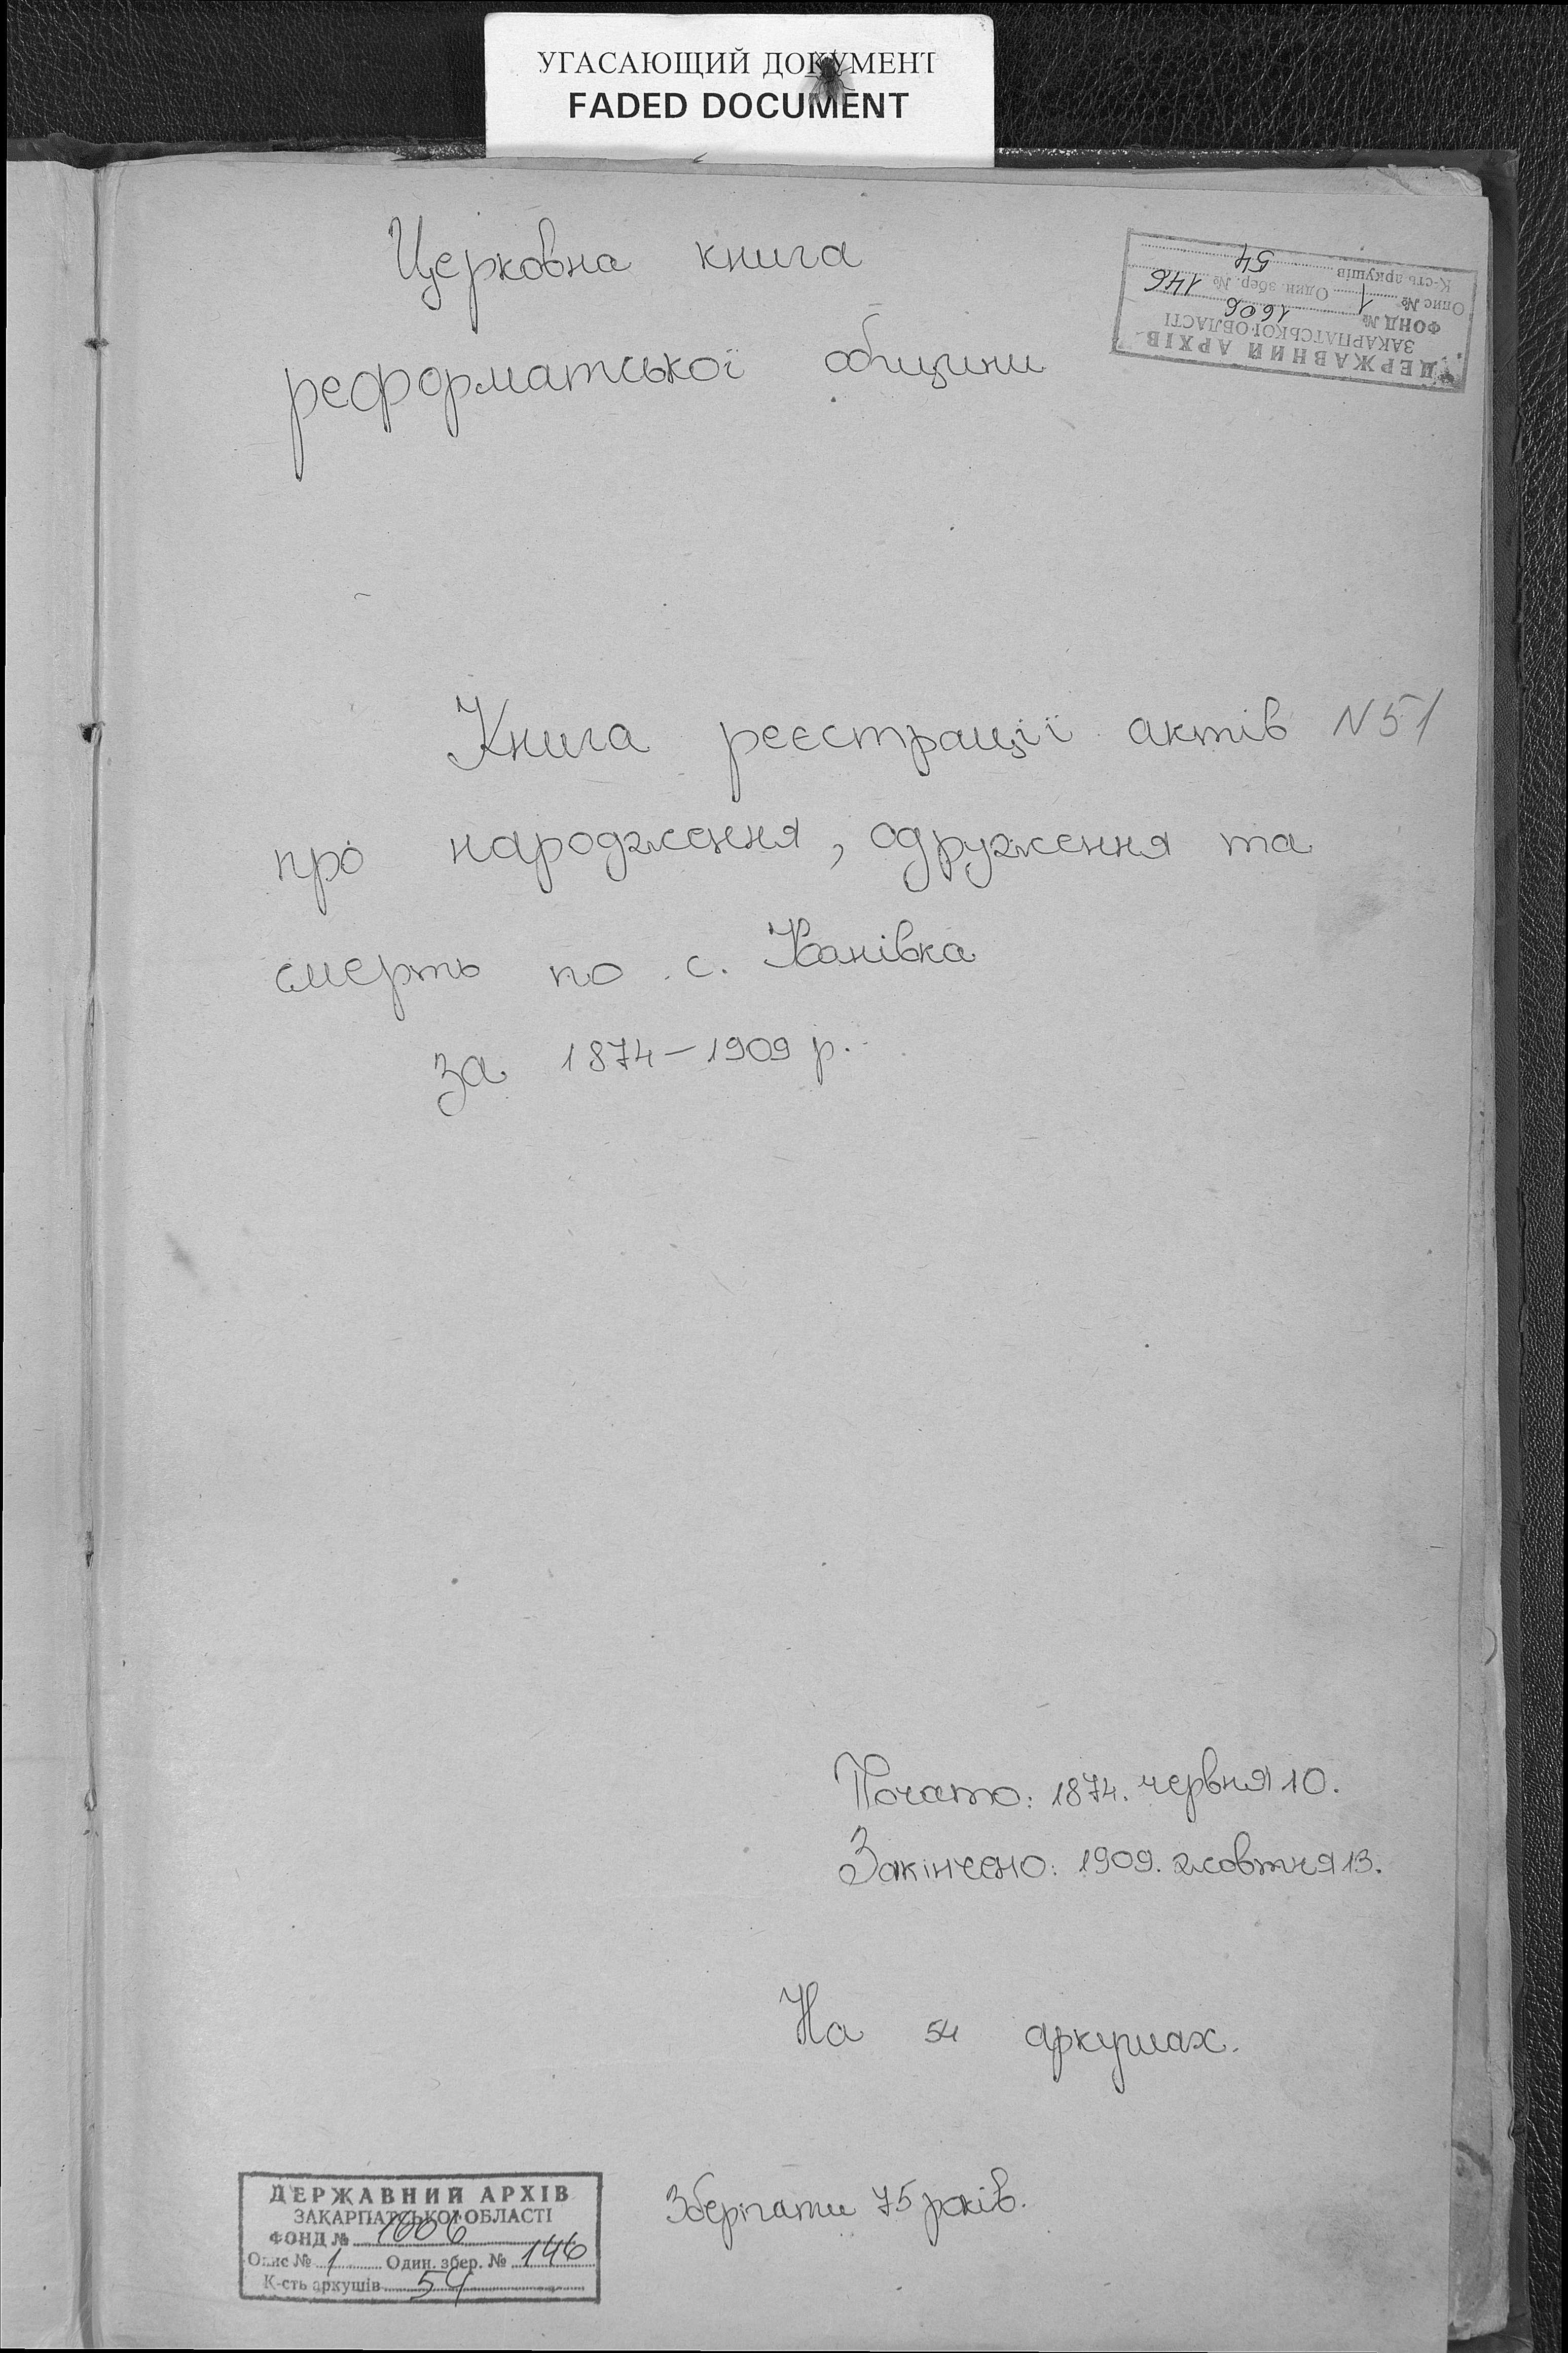 УГАСАЮЩИЙ ДОКУМЕНТ
FADED DOCUMENT
Церковна книга
реформатської общини
ДЕРЖАВНИЙ АРХІВ
ЗАКАРПАТСЬКОЇ ОБЛАСТІ
ФОНД № 1606
Опис № 1 Один. збер. № 146
К-сть аркушів 54
Книга реєстрації актів N 51
про народження, одруження та
смерть по с. Ханівка
за 1874-1909 р.
Почато: 1874. червня 10.
Закінчено: 1909. жовтня 13.
На 54 аркушах.
Зберігати 75 років.
ДЕРЖАВНИЙ АРХІВ
ЗАКАРПАТСЬКОЇ ОБЛАСТІ
ФОНД № 1606
Опис № 1 Один. збер. № 146
К-сть аркушів 54